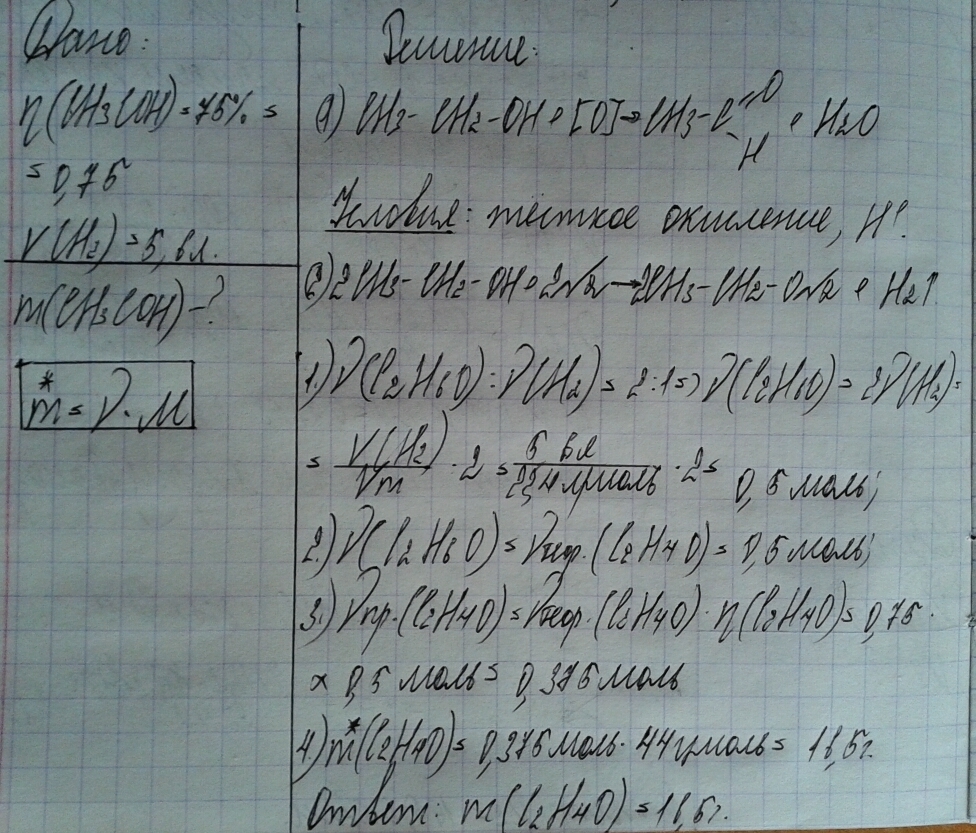 Дано:
η(CH3COH)=75% =
= 0,75
V(H2) = 5,6л.
m(CH3COH)-?
*
m = ν · M
Решение:
(1) CH3-CH2-OH + [O] → CH3-C=O-H + H2O
Условия: жёсткое окисление, H+.
(2) 2CH3-CH2-OH + 2Na → 2CH3-CH2-ONa + H2↑
1.) ν(C2H6O) : ν(H2) = 2:1 => ν(C2H6O) = 2ν(H2) =
= V(H2)/Vm · 2 = 5,6л/22,4л/моль · 2 = 0,5 моль;
2.) ν(C2H6O) = νтеор.(C2H4O) = 0,5 моль;
3.) νпр.(C2H4O) = νтеор.(C2H4O) · η(C2H4O) = 0,75 ·
× 0,5 моль = 0,375 моль
4.) m*(C2H4O) = 0,375 моль · 44г/моль = 16,5г.
Ответ: m(C2H4O) = 16,5г.